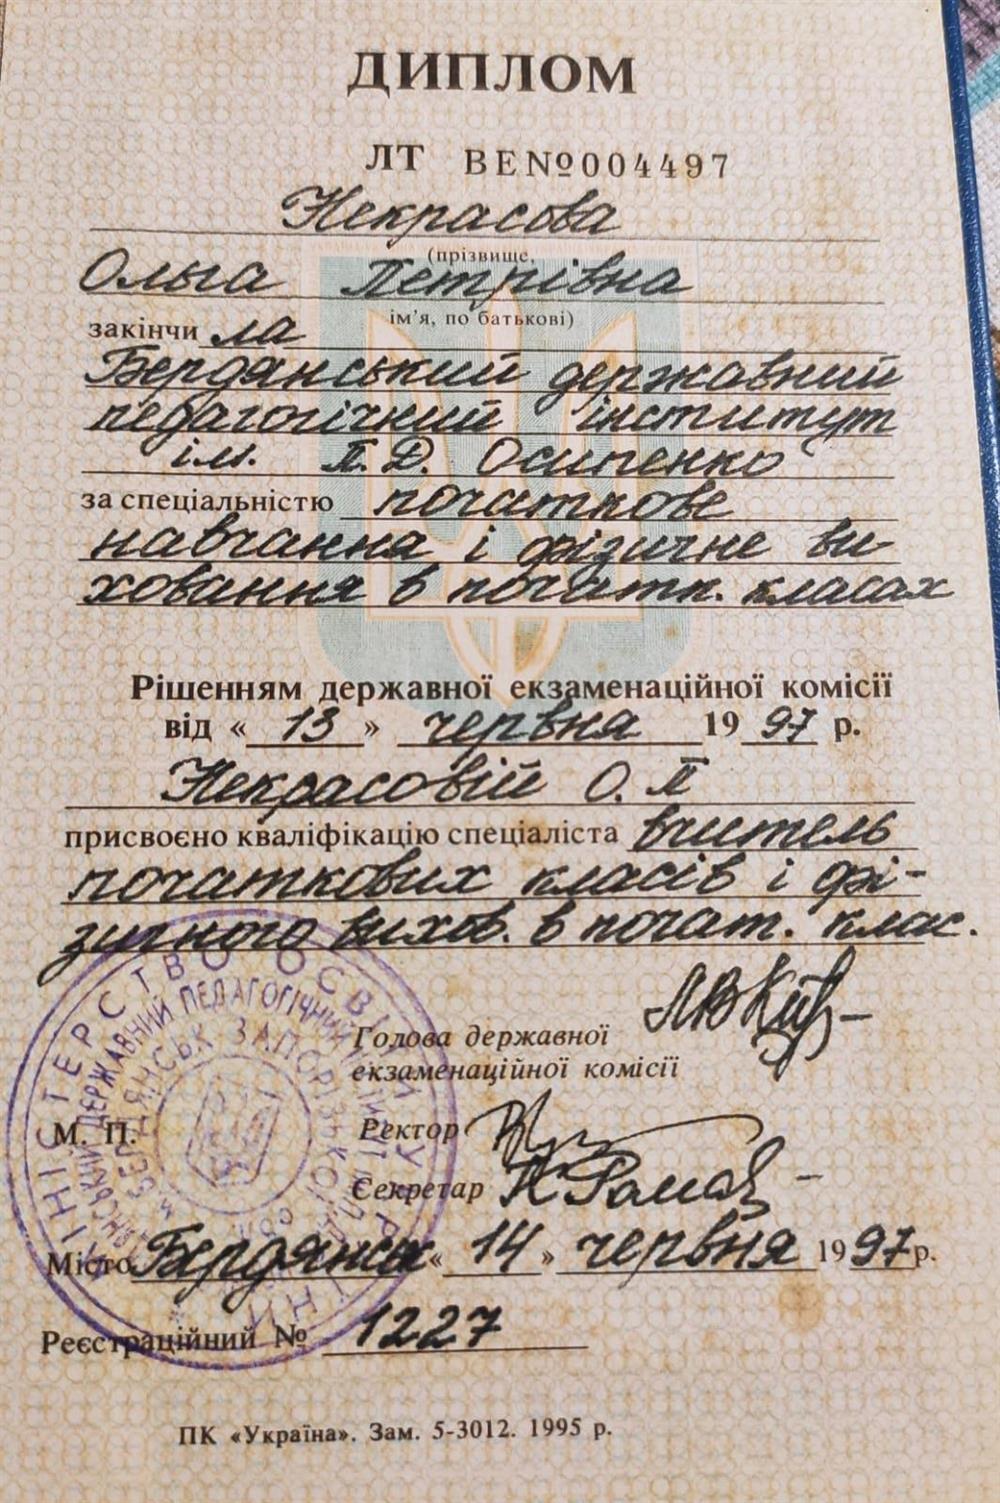 ДИПЛОМ
ЛТ ВЕ№004497
Некрасова
(прізвище,
Ольга Петрівна
ім’я, по батькові)
закінчила
Бердянський державний
педагогічний інститут
ім. П.Д. Осипенко
за спеціальністю початкове
навчання і фізичне ви-
ховання в початк. класах
Рішенням державної екзаменаційної комісії
від «13» червня 1997 р.
Некрасовій О.П
присвоєно кваліфікацію спеціаліста вчитель
початкових класів і фі-
зичного вихов. в почат. клас.
Голова державної
екзаменаційної комісії
М. П.
Ректор
Секретар
Місто Бердянськ «14» червня 1997р.
Реєстраційний № 1227
ПК «Україна». Зам. 5-3012. 1995 р.
МІНІСТЕРСТВО ОСВІТИ УКРАЇНИ
ДЕРЖАВНИЙ ПЕДАГОГІЧНИЙ